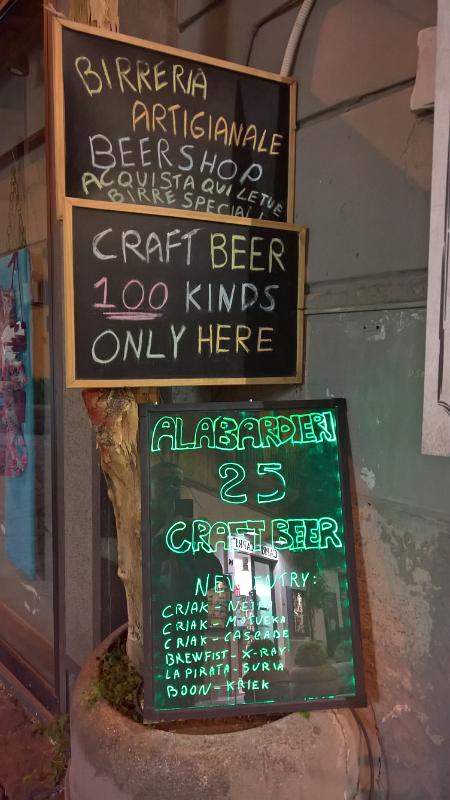 BIRRERIA
ARTIGIANALE
BEERSHOP
ACQUISTA QUI LE TUE
BIRRE SPECIALI
CRAFT BEER
100 KINDS
ONLY HERE
ALABARDIERI
25
CRAFT BEER
NEW ENTRY:
CRIAK -
CRIAK - MOTUEKA
CRIAK - CASCADE
BREWFIST - X-RAY
LA PIRATA - SURIA
BOON - KRIEK